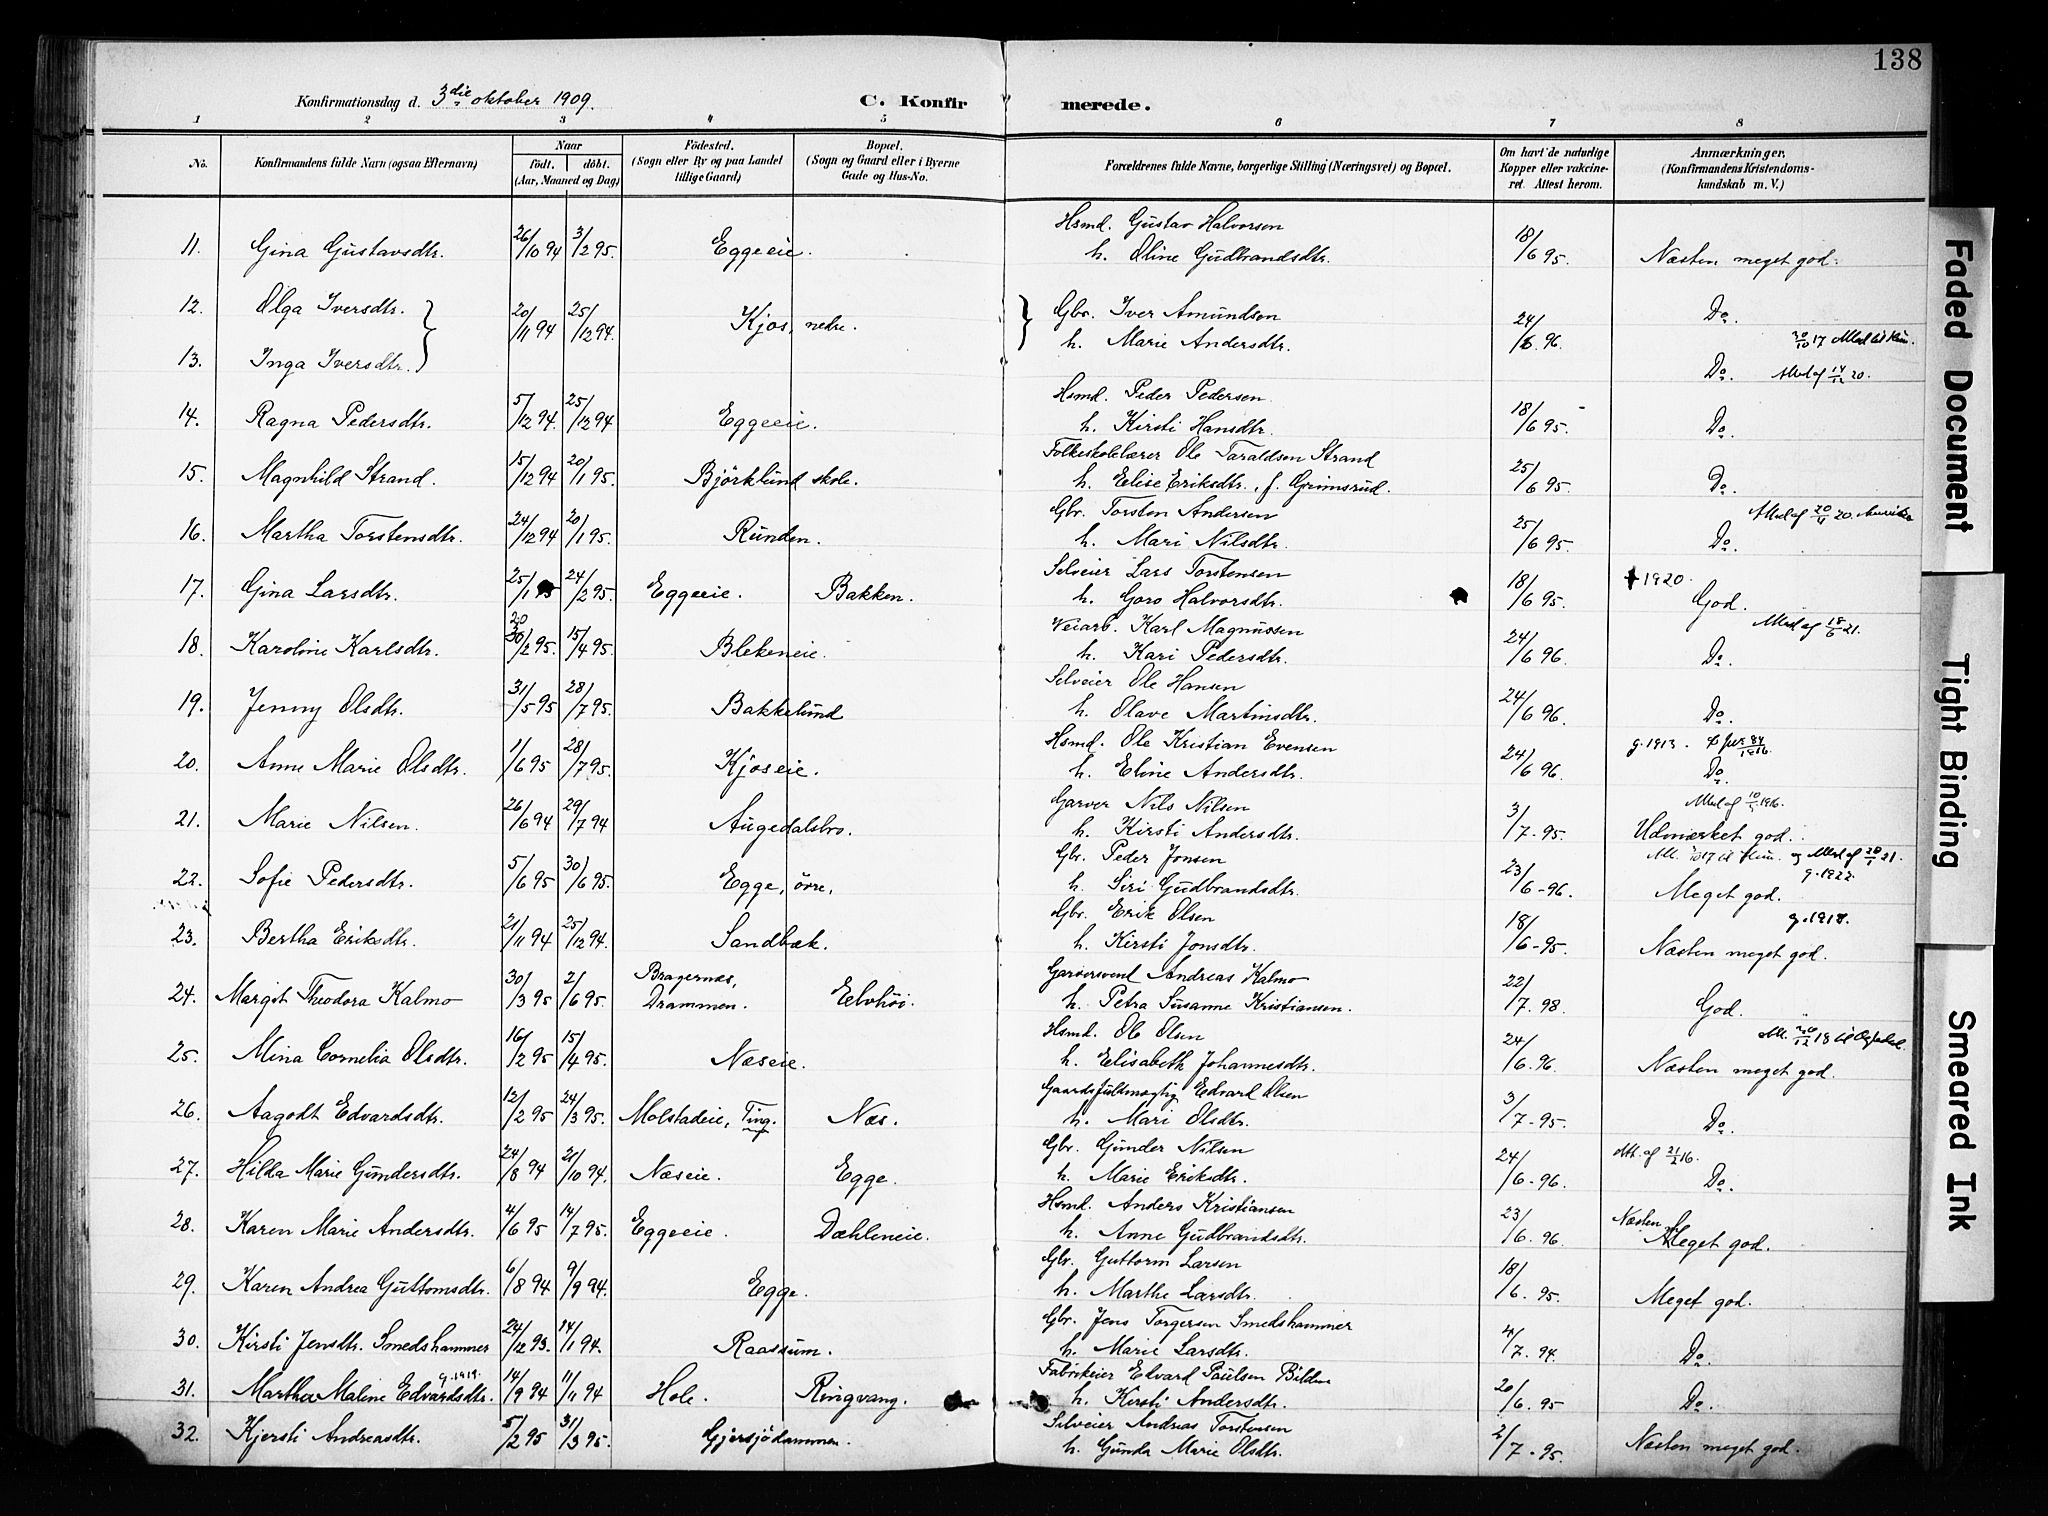 138
Konfirmationsdag d. 3die oktober 1909.
C. Konfirmerede.
1 2 3 4 5 6 7 8
No.
Konfirmandens fulde Navn (ogsaa Efternavn)
Naar
født. døbt.
(Aar, Maaned og Dag)
Fødested.
(Sogn eller By og paa Landet
tillige Gaard)
Bopæl.
(Sogn og Gaard eller i Byerne
Gade og Hus-No.
Forældrenes fulde Navne, borgerlige Stilling (Næringsvei) og Bopæl.
Om havt de naturlige
Kopper eller vakcine-
ret. Attest herom.
Anmærkninger,
(Konfirmandens Kristendoms-
kundskab m. V.)
Hsmd. Gustav Halvorsen
11. Gina Gustavsdtr. 26/10 94 3/2 95. Eggeeie. h. Oline Gudbrandsdtr. 18/6 95. Næsten meget god.
12. Olga Iversdtr. 20/11 94 25/12 94. Kjos, nedre. Gbr. Iver Amundsen 24/6. 96. Do.
h. Marie Andersdtr. 30/10 17
13. Inga Iversdtr. Do. Med af 14/12 20.
Hsmd. Peder Pedersen
14. Ragna Pedersdtr. 5/12 94. 25/12 94 Eggeeie. h. Kirsti Hansdtr. 18/6 95. Do.
Folkeskolelærer Ole Taraldsen Strand
15. Magnhild Strand. 15/12 94 20/1 95. Björklund skole. h. Elise Eriksdtr., f. Grimsrud. 25/6 95. Do.
Gbr. Torsten Andersen 20. Amerika
16. Martha Torstensdtr. 24/12 94 20/1 95. Runden. h. Mari Nilsdtr. 25/6 95. Do.
Selveier Lars Torstensen 1920.
17. Gina Larsdtr. 25/1 24/2 95. Eggeeie. Bakken. h. Goro Halvorsdtr. 18/6 95. God.
Veiarb. Karl Magnussen 18/6 21.
18. Karoline Karlsdtr. 20/2 95. 15/4 95. Blekeneie. h. Kari Pedersdtr. 24/6 96. Do.
Selveier Ole Hansen
19. Jenny Olsdtr. 31/5 95 28/7 95. Bakkelund h. Olave Martinsdtr. 24/6 96. Do.
Hsmd. Ole Kristian Evensen g. 1913.
20. Anne Marie Olsdtr. 1/6 95 28/7 95. Kjoseie. h. Eline Andersdtr. 24/6 96. Do.
Garver Nils Nilsen 1916.
21. Marie Nilsen. 26/6 94 29/7 94 Augedalsbro. h. Kirsti Andersdtr. 3/7. 95. Udmærket god.
Gbr. Peder Jonsen
22. Sofie Pedersdtr. 5/6 95 30/6 95. Egge, övre. h. Siri Gudbrandsdtr. 23/6 - 96. Meget god. g. 1922.
Gbr. Erik Olsen g. 1918.
23. Bertha Eriksdtr. 21/11 94 25/12 94. Sandbæk. h. Kirsti Jonsdtr. 18/6 - 95. Næsten meget god.
Garversvend Andreas Kalmo
24. Margit Theodora Kalmo 30/3 95 2/6 95. Bragernæs, Drammen. Elvhöi. h. Petra Susanne Kristiansen. 22/7. 98. God.
Hsmd. Ole Olsen
25. Mina Cornelia Olsdtr. 16/2 95 15/4 95. Næseie. h. Elisabeth Johannesdtr. 24/6. 96. Næsten meget god.
Gaardsfuldmægtig Edvard Olsen
26. Aagodt Edvardsdtr. 12/2 95 24/3 95. Molstadeie, Ting. Næs. h. Mari Olsdtr. 3/7 - 95. Do.
Gbr. Gunder Nilsen 21/2 16.
27. Hilda Marie Gundersdtr. 24/8 94 21/10 94. Næseie. Egge. h. Marie Eriksdtr. 24/6 - 96. Do.
Hsmd. Anders Kristiansen
28. Karen Marie Andersdtr. 4/6 95 14/7 95. Eggeeie. Dæhleneie. h. Anne Gudbrandsdtr. 23/6. 96. Næsten Meget god.
Gbr. Guttorm Larsen
29. Karen Andrea Guttormsdtr. 6/8 94 9/9 94. Egge. h. Marthe Larsdtr. 18/6. 95. Meget god.
Gbr. Jens Torgersen Smedshammer
30. Kirsti Jensdtr. Smedshammer 24/12 93. 14/1 94. Raassum. h. Marie Larsdtr. 4/7. 94. Do.
g. 1919. Fabrikeier Edvard Paulsen Bilden
31. Martha Maline Edvardsdtr. 14/9 94 11/11 94 Hole. Ringvang. h. Kirsti Andersdtr. 20/6. 95 Do.
Selveier Andreas Torstensen
32. Kjersti Andreasdtr. 5/2 95 31/3 95. Gjersjödammen. h. Gunda Marie Olsdtr. 2/7 - 95. Næsten meget god.
Faded Document
Tight Binding
Smeared Ink